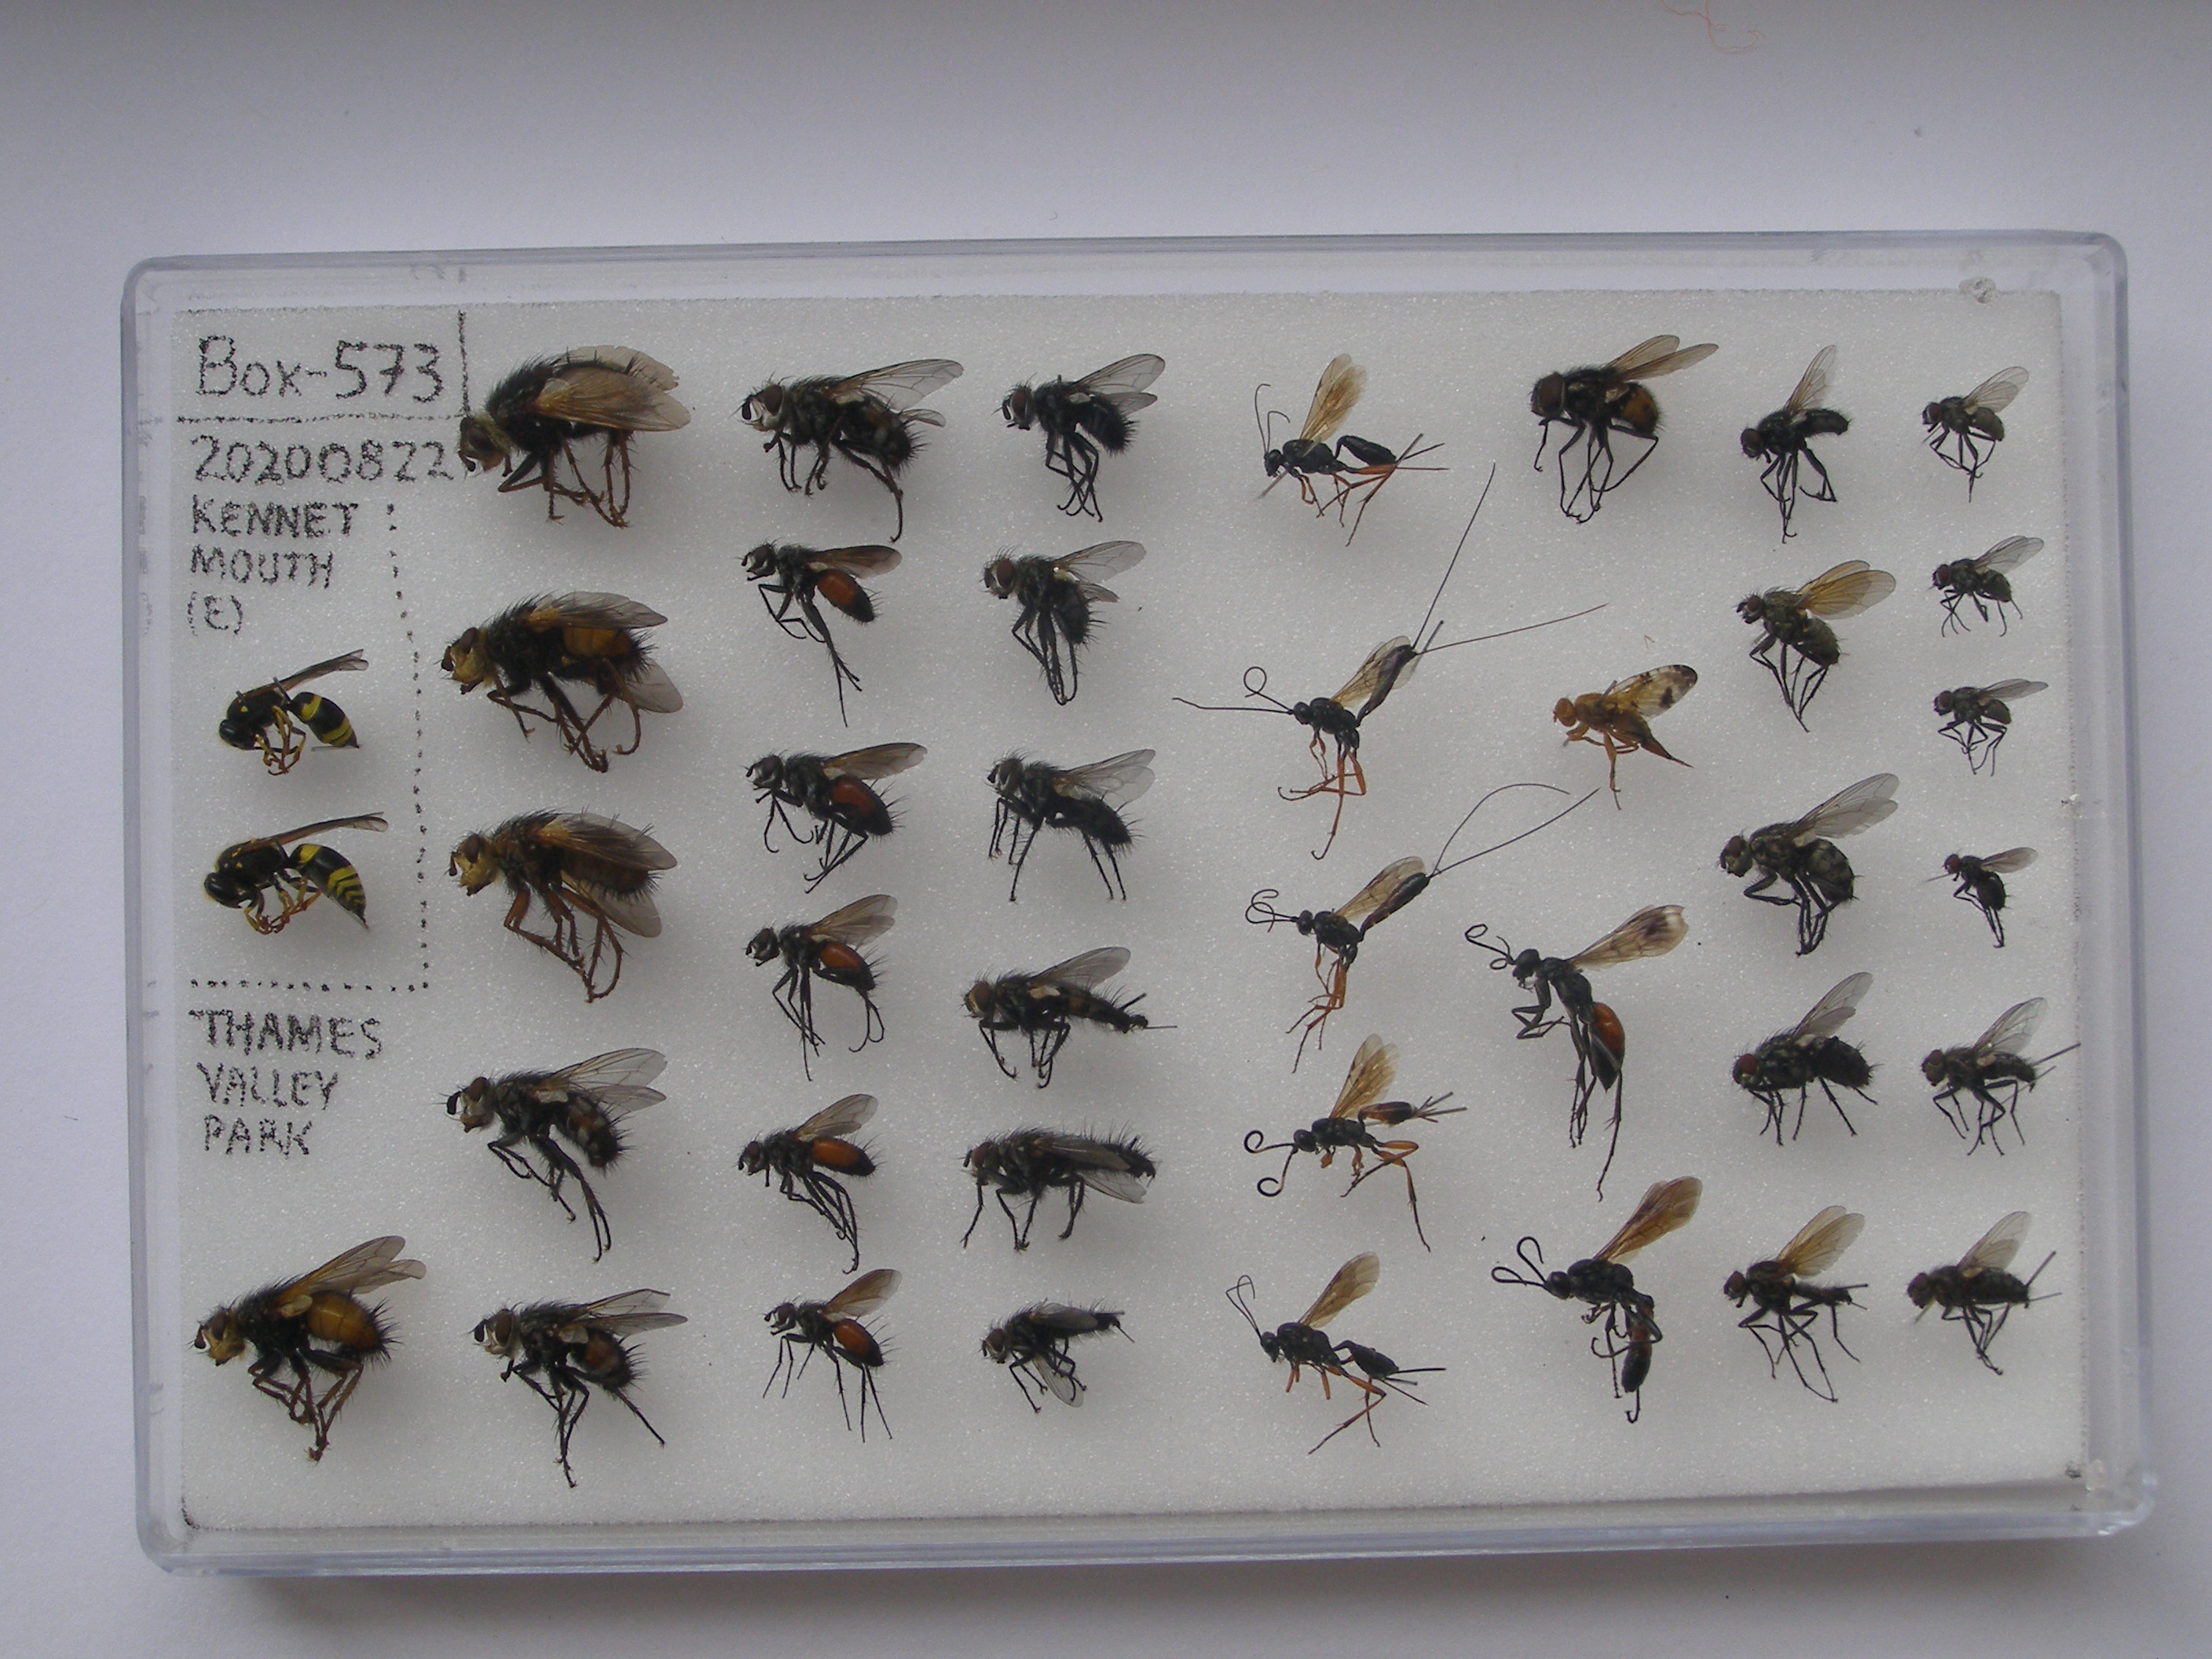 Box-573
20200822
KENNET :
MOUTH
(E)
THAMES
VALLEY
PARK